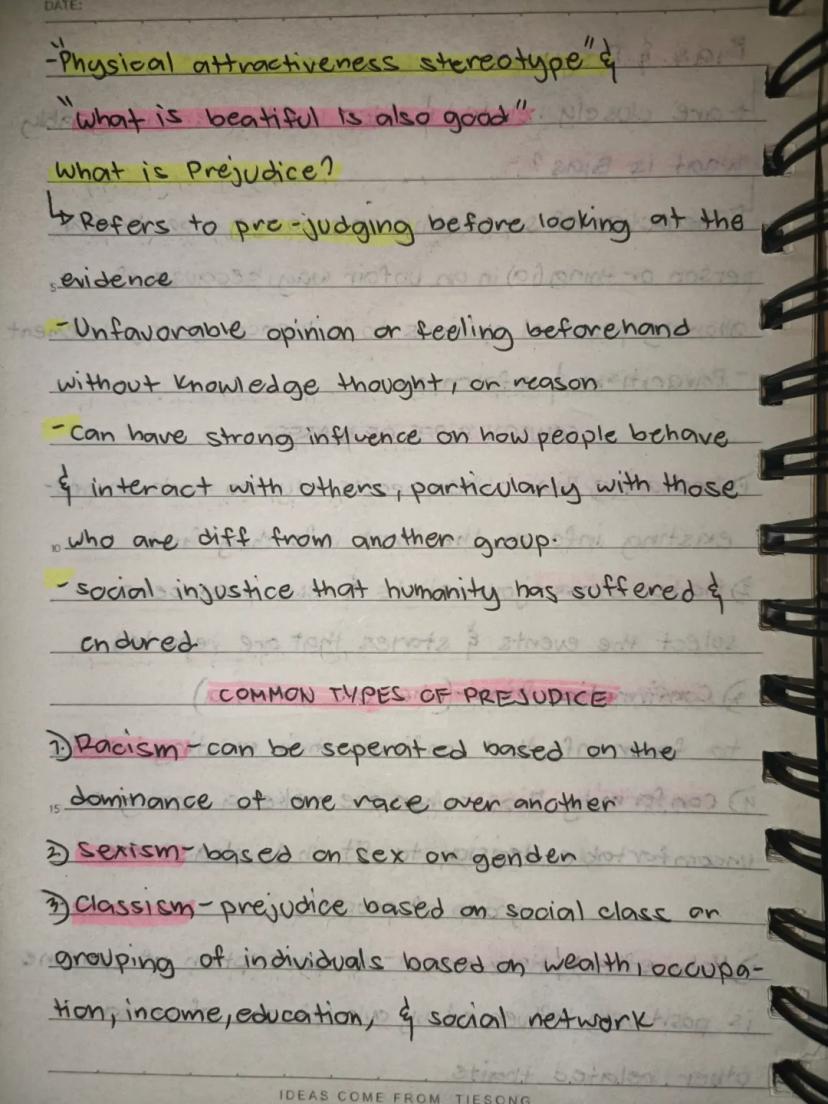 DATE:
-"Physical attractiveness stereotype" &
"what is beatiful is also good"
What is Prejudice?
↳ Refers to pre-judging before looking at the
5 evidence
- Unfavorable opinion or feeling beforehand
without knowledge thought, or reason
- can have strong influence on how people behave
& interact with others, particularly with those
10 who are diff from another group.
- social injustice that humanity has suffered &
endured
COMMON TYPES OF PREJUDICE
1) Racism - can be seperated based on the
15 dominance of one race over another
2) Sexism - based on sex or gender
3) Classism - prejudice based on social class or
grouping of individuals based on wealth, occupa-
tion, income, education, & social network
IDEAS COME FROM TIESONG